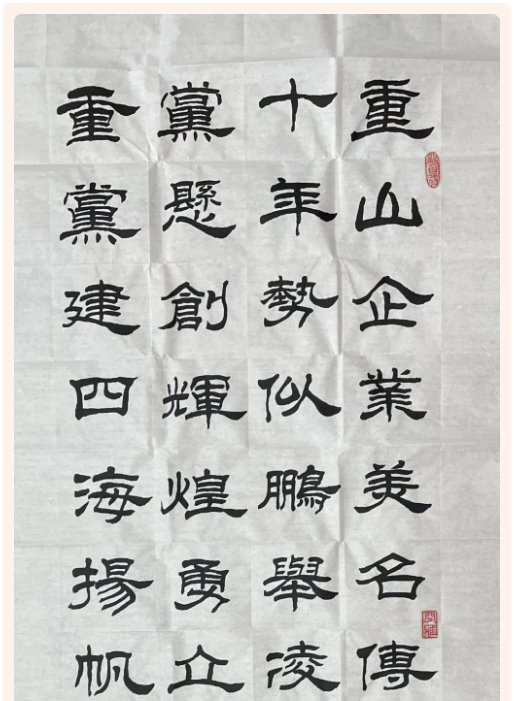 重山企業美名傳
十年勢似鵬舉凌
黨懸創輝煌勇立
重黨建四海揚帆